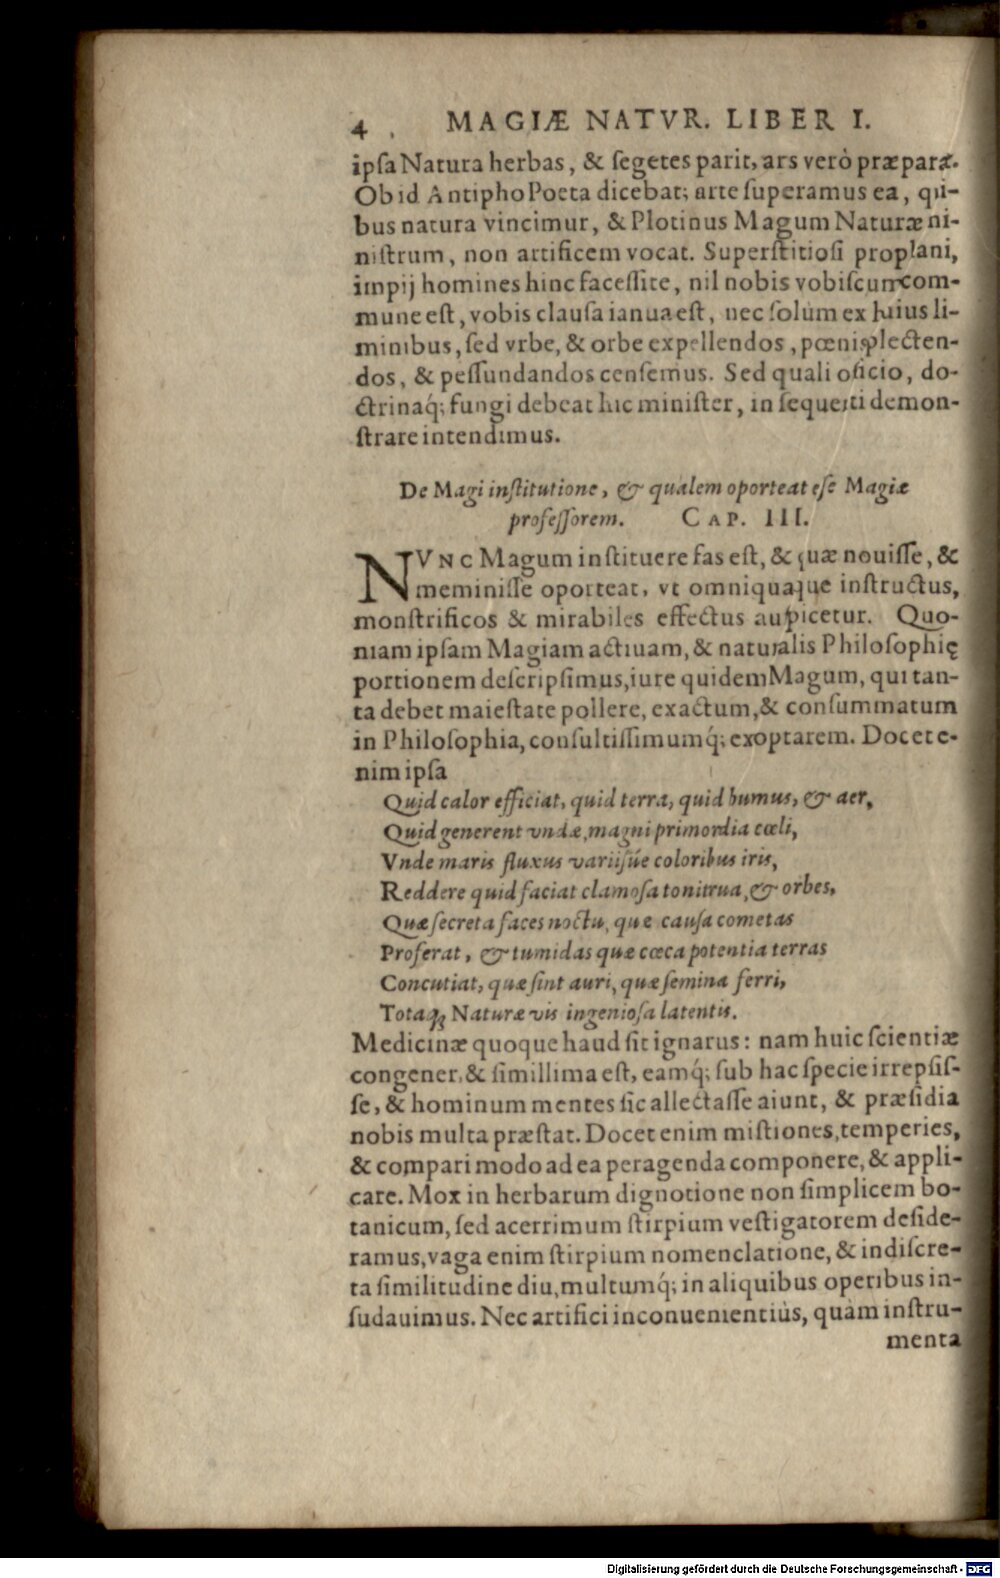 4 MAGIÆ NATVR. LIBER I.
ipsa Natura herbas, & segetes parit, ars verò præparat.
Ob id Antipho Poeta dicebat; arte superamus ea, qui-
bus natura vincimur, & Plotinus Magum Naturæ mi-
nistrum, non artificem vocat. Superstitiosi prophani,
impij homines hinc facessite, nil nobis vobiscum com-
mune est, vobis clausa ianua est, nec solùm ex huius li-
minibus, sed vrbe, & orbe expellendos, pœnis plecten-
dos, & pessundandos censemus. Sed quali oficio, do-
ctrinaq́; fungi debeat hic minister, in sequenti demon-
strare intendimus.
De Magi institutione, & qualem oporteat esse Magiæ
professorem. CAP. III.
NVNC Magum instituere fas est, & quæ nouisse, &
meminisse oporteat, vt omni quaque instructus,
monstrificos & mirabiles effectus auspicetur. Quo-
niam ipsam Magiam actiuam, & naturalis Philosophię
portionem descripsimus, iure quidem Magum, qui tan-
ta debet maiestate pollere, exactum, & consummatum
in Philosophia, consultissimumq́; exoptarem. Docet e-
nim ipsa
Quid calor efficiat, quid terra, quid humus, & aer,
Quid generent vndæ, magni primordia cœli,
Vnde maris fluxus variisúe coloribus iris,
Reddere quid faciat clamosa tonitrua, & orbes,
Quæ secreta faces noctu, quæ causa cometas
Proferat, & tumidas quæ cœca potentia terras
Concutiat, quæ sint auri, quæ semina ferri,
Totaq; Naturæ vis ingeniosa latentis.
Medicinæ quoque haud sit ignarus: nam huic scientiæ
congener, & simillima est, eamq́; sub hac specie irrepsis-
se, & hominum mentes sic allectasse aiunt, & præsidia
nobis multa præstat. Docet enim mistiones, temperies,
& compari modo ad ea peragenda componere, & appli-
care. Mox in herbarum dignotione non simplicem bo-
tanicum, sed acerrimum stirpium vestigatorem deside-
ramus, vaga enim stirpium nomenclatione, & indiscre-
ta similitudine diu, multumq́; in aliquibus operibus in-
sudauimus. Nec artifici inconuenientiùs, quàm instru-
menta
Digitalisierung gefördert durch die Deutsche Forschungsgemeinschaft - DFG